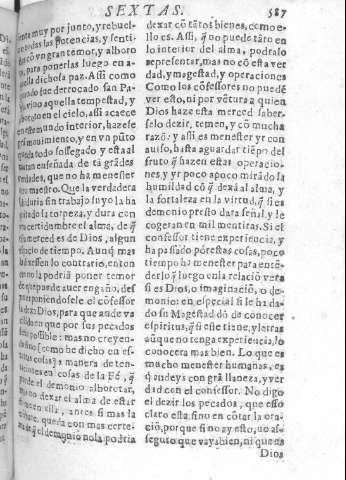 SEXTAS. 587
muy por junto, y rebuel-
todas las potencias, y senti-
có vn gran temor, y alboro
para ponerlas luego en a-
dichosa paz. Assi como
fue derrocado san Pa-
vino aquella tempestad, y
en el cielo, assi acaece
mundo interior, hazese
mouimiento, y en vn púto
todo sossegado y esta al
enseñada de tã grãdes
que no ha menester
maestro. Que la verdadera
sin trabajo suyo la ha
quitado la torpeza, y dura con
certidumbre el alma, de q̃
merced es de Dios, algun
de tiempo. Aunq̃ mas
lo contrario, entonces
no la podriã poner temor
de que puede auer engaño, des
poniendosele el cõfessor
Dios, para que ande va
en que por sus pecados
possible: mas no creyen-
[como he dicho en es-
cosas] a manera de ten-
en cosas de la Fè, q̃
puede el demonio alborotar,
no dexar el alma de estar
en ella, antes si mas la
queda con mas certe-
q̃ el demonio no la podria
dexar cõ tãtos bienes, como e-
llo es. Assi, q̃ no puede tãto en
lo interior del alma, podralo
representar, mas no cõ esta ver
dad, y magestad, y operaciones
Como los cõfessores no puedẽ
ver esto, ni por vẽtura a quien
Dios haze esta merced saber-
selo dezir, temen, y cõ mucha
razõ: y assi es menester yr con
auiso, hasta aguardar tiẽpo del
fruto q̃ hazen estas operacio-
nes, y yr poco apoco mirãdo la
humildad cõ q̃ dexã al alma, y
la fortaleza en la virtud, q̃ si es
demonio presto dara señal, y le
cogeran en mil mentiras. Si el
confessor tiene experiencia, y
ha passado por estas cosas, poco
tiempo ha menester para entẽ-
derlo, q̃ luego en la relació vera
si es Dios, o imaginaciõ, o de-
monio: en especial si le ha da-
do su Magestad dõ de conocer
espiritus, q̃ si este tiene, y letras
aũque no tenga experiencia, lo
conocera mas bien. Lo que es
mucho menester humanas, es
q̃ andeys con grã llaneza, y ver
dad con el confessor. No digo
el dezir los pecados, que esso
claro esta, sino en cõtar la ora-
ciõ, porque si no ay esto, no as-
seguro que vays bien, ni que es
Dios